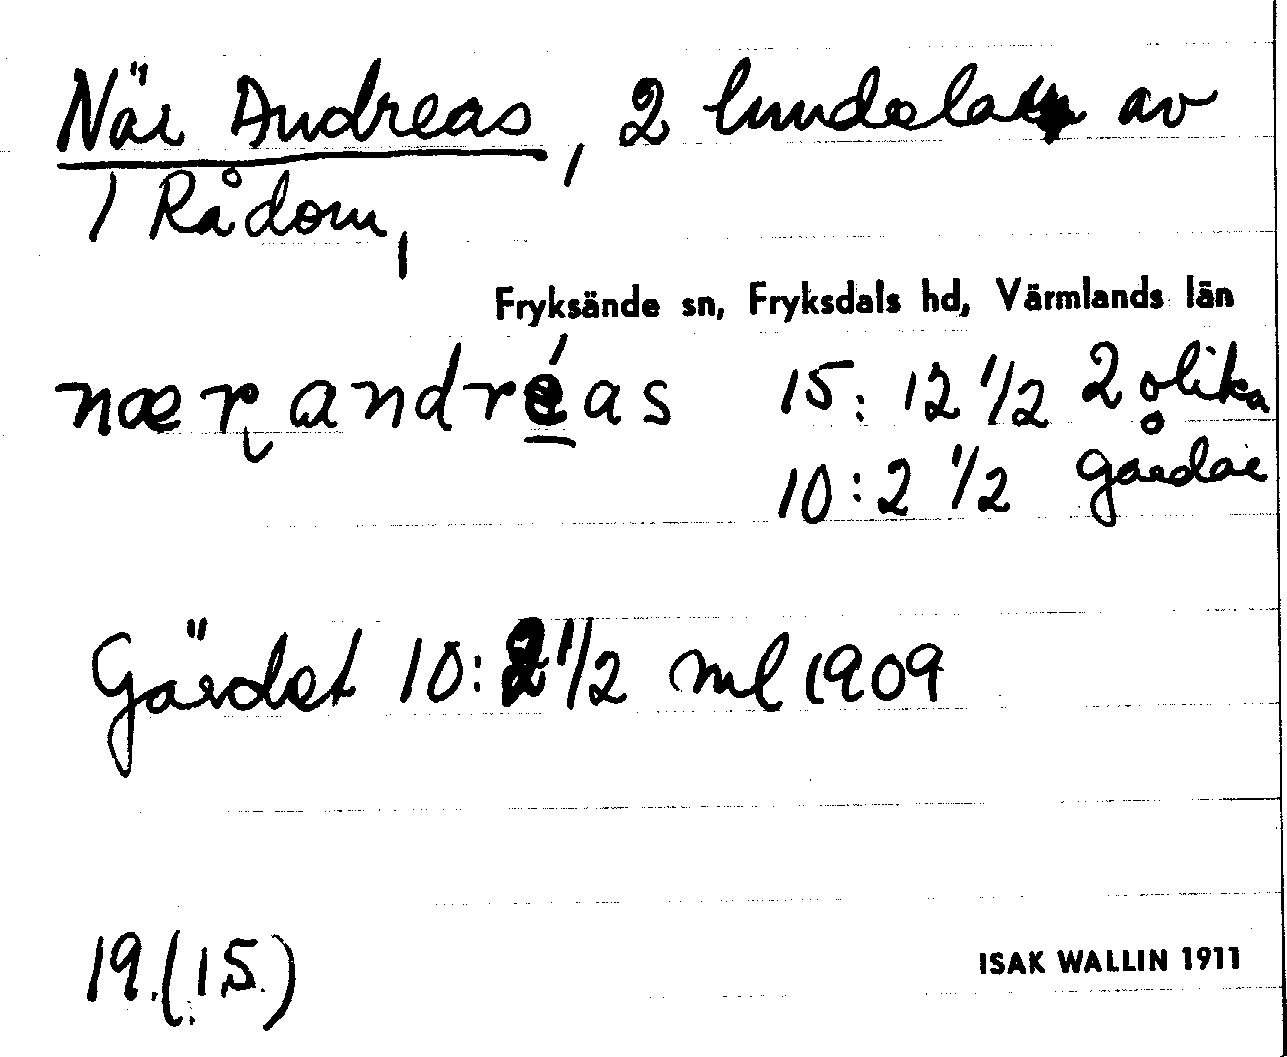 När Andreas, 2 hmdelar av
1 Rådom,
Fryksände sn, Fryksdals hd, Värmlands län
næʀ andréas 15: 12 1/2 2 olika
10: 2 1/2 gårdar
Gärdet 10: 2 1/2 ml 1909
19. (15.)
ISAK WALLIN 1911